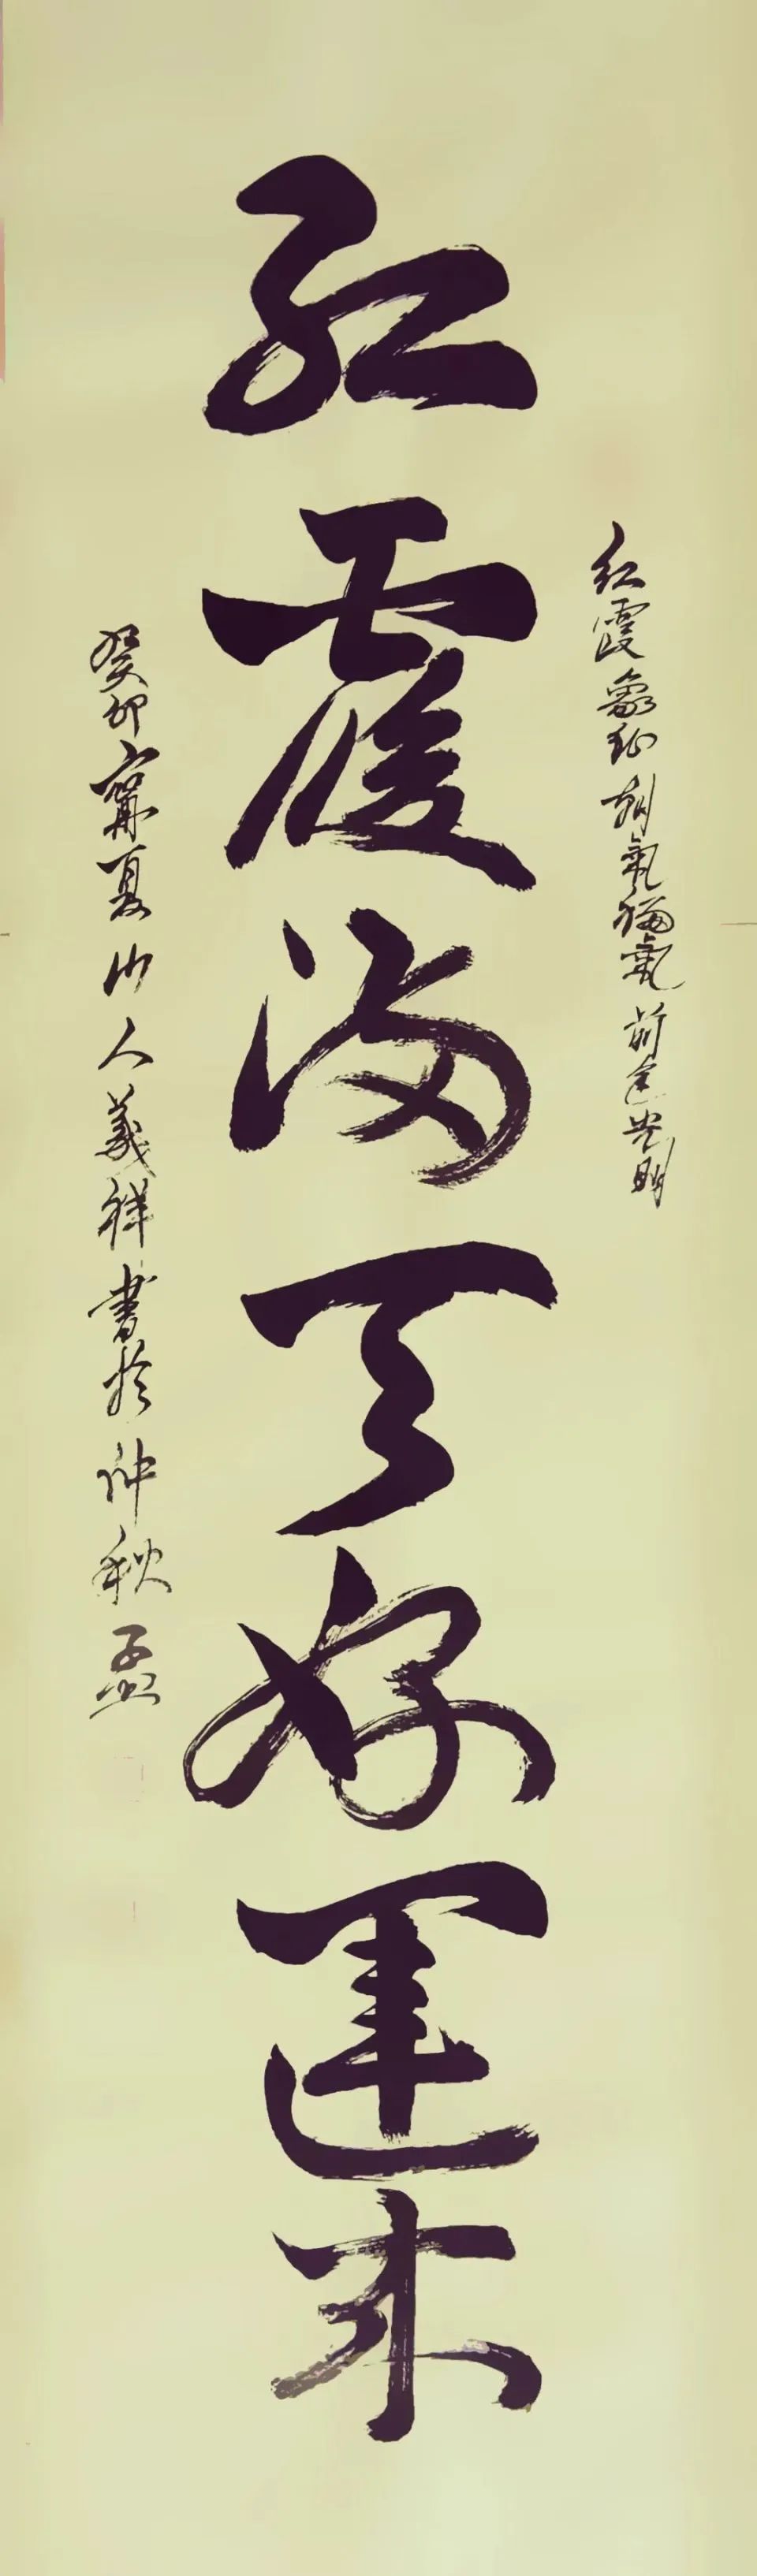 红霞象征朝氣福氣前途光明
红霞满天好運来
癸卯寧夏山人義祥書於仲秋